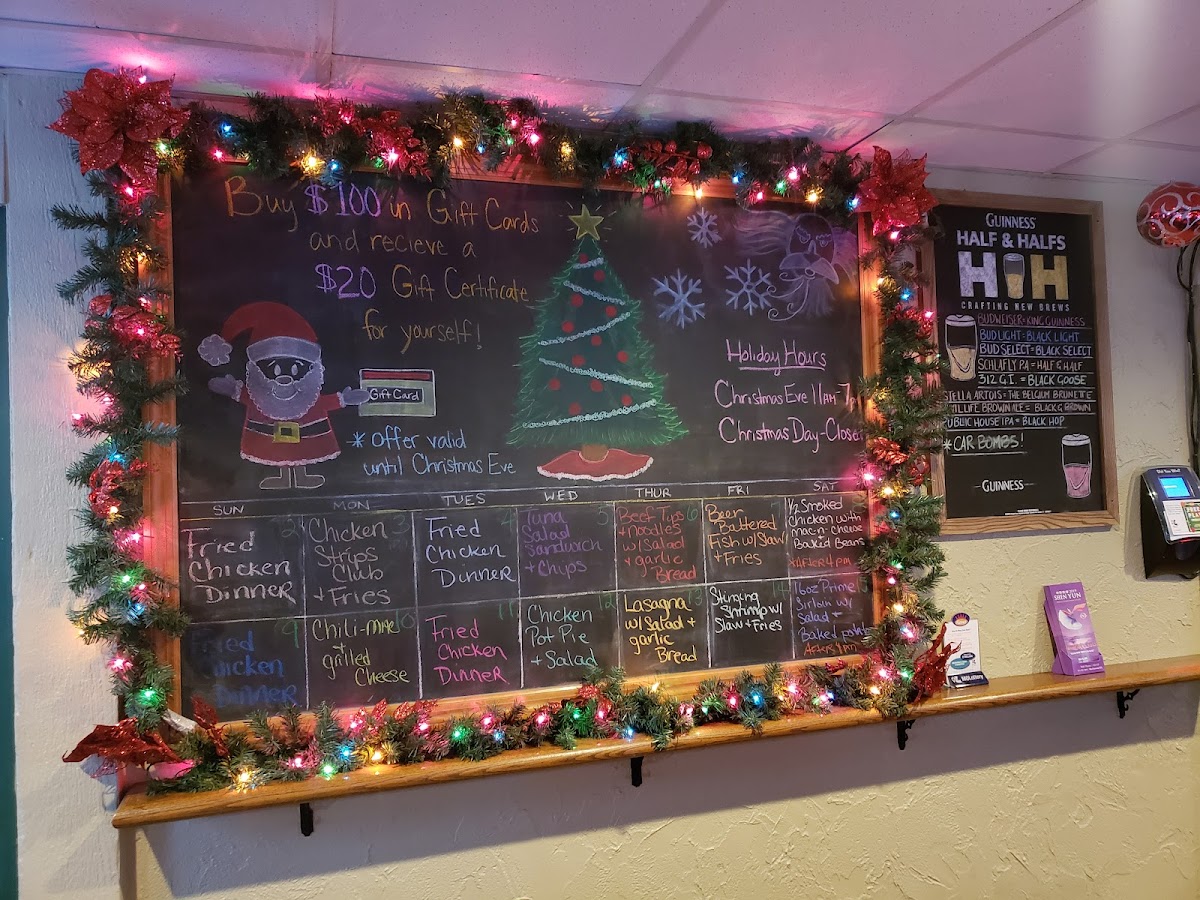 Buy $100 in Gift Cards
and recieve a
$20 Gift Certificate
for yourself!
Gift Card
* Offer valid
until Christmas Eve
Holiday Hours
Christmas Eve 11AM-7
Christmas Day-Close
SUN MON TUES WED THUR FRI SAT
2
Fried
Chicken
Dinner
3
Chicken
Strips
Club
+ Fries
4
Fried
Chicken
Dinner
5
Tuna
Salad
Sandwich
+ Chips
6
Beef Tips
+ noodles
w/ Salad
+ garlic
Bread
Beer
Battered
Fish w/ Slaw
+ Fries
1/2 Smoked
Chicken with
mac-n-cheese
Baked Beans
*After 4 pm
9
Fried
Chicken
Dinner
10
Chili-Mac
+
grilled
Cheese
11
Fried
Chicken
Dinner
12
Chicken
Pot Pie
+ Salad
13
Lasagna
w/ Salad +
garlic
Bread
14
Stinging
Shrimp w/
Slaw + Fries
16oz Prime
Sirloin w/
Salad +
Baked potato
GUINNESS
HALF & HALFS
H H
CRAFTING NEW BREWS
BUDWEISER = KING GUINNESS
BUD LIGHT = BLACK LIGHT
BUD SELECT = BLACK SELECT
SCHLAFLY PA = HALF & HALF
312 G.I. = BLACK GOOSE
STELLA ARTOIS = THE BELGIUM BRUNETTE
BROWN ALE = BLACK & BROWN
PUBLIC HOUSE IPA = BLACK HOP
* CAR BOMBS!
GUINNESS
SHEN YUN